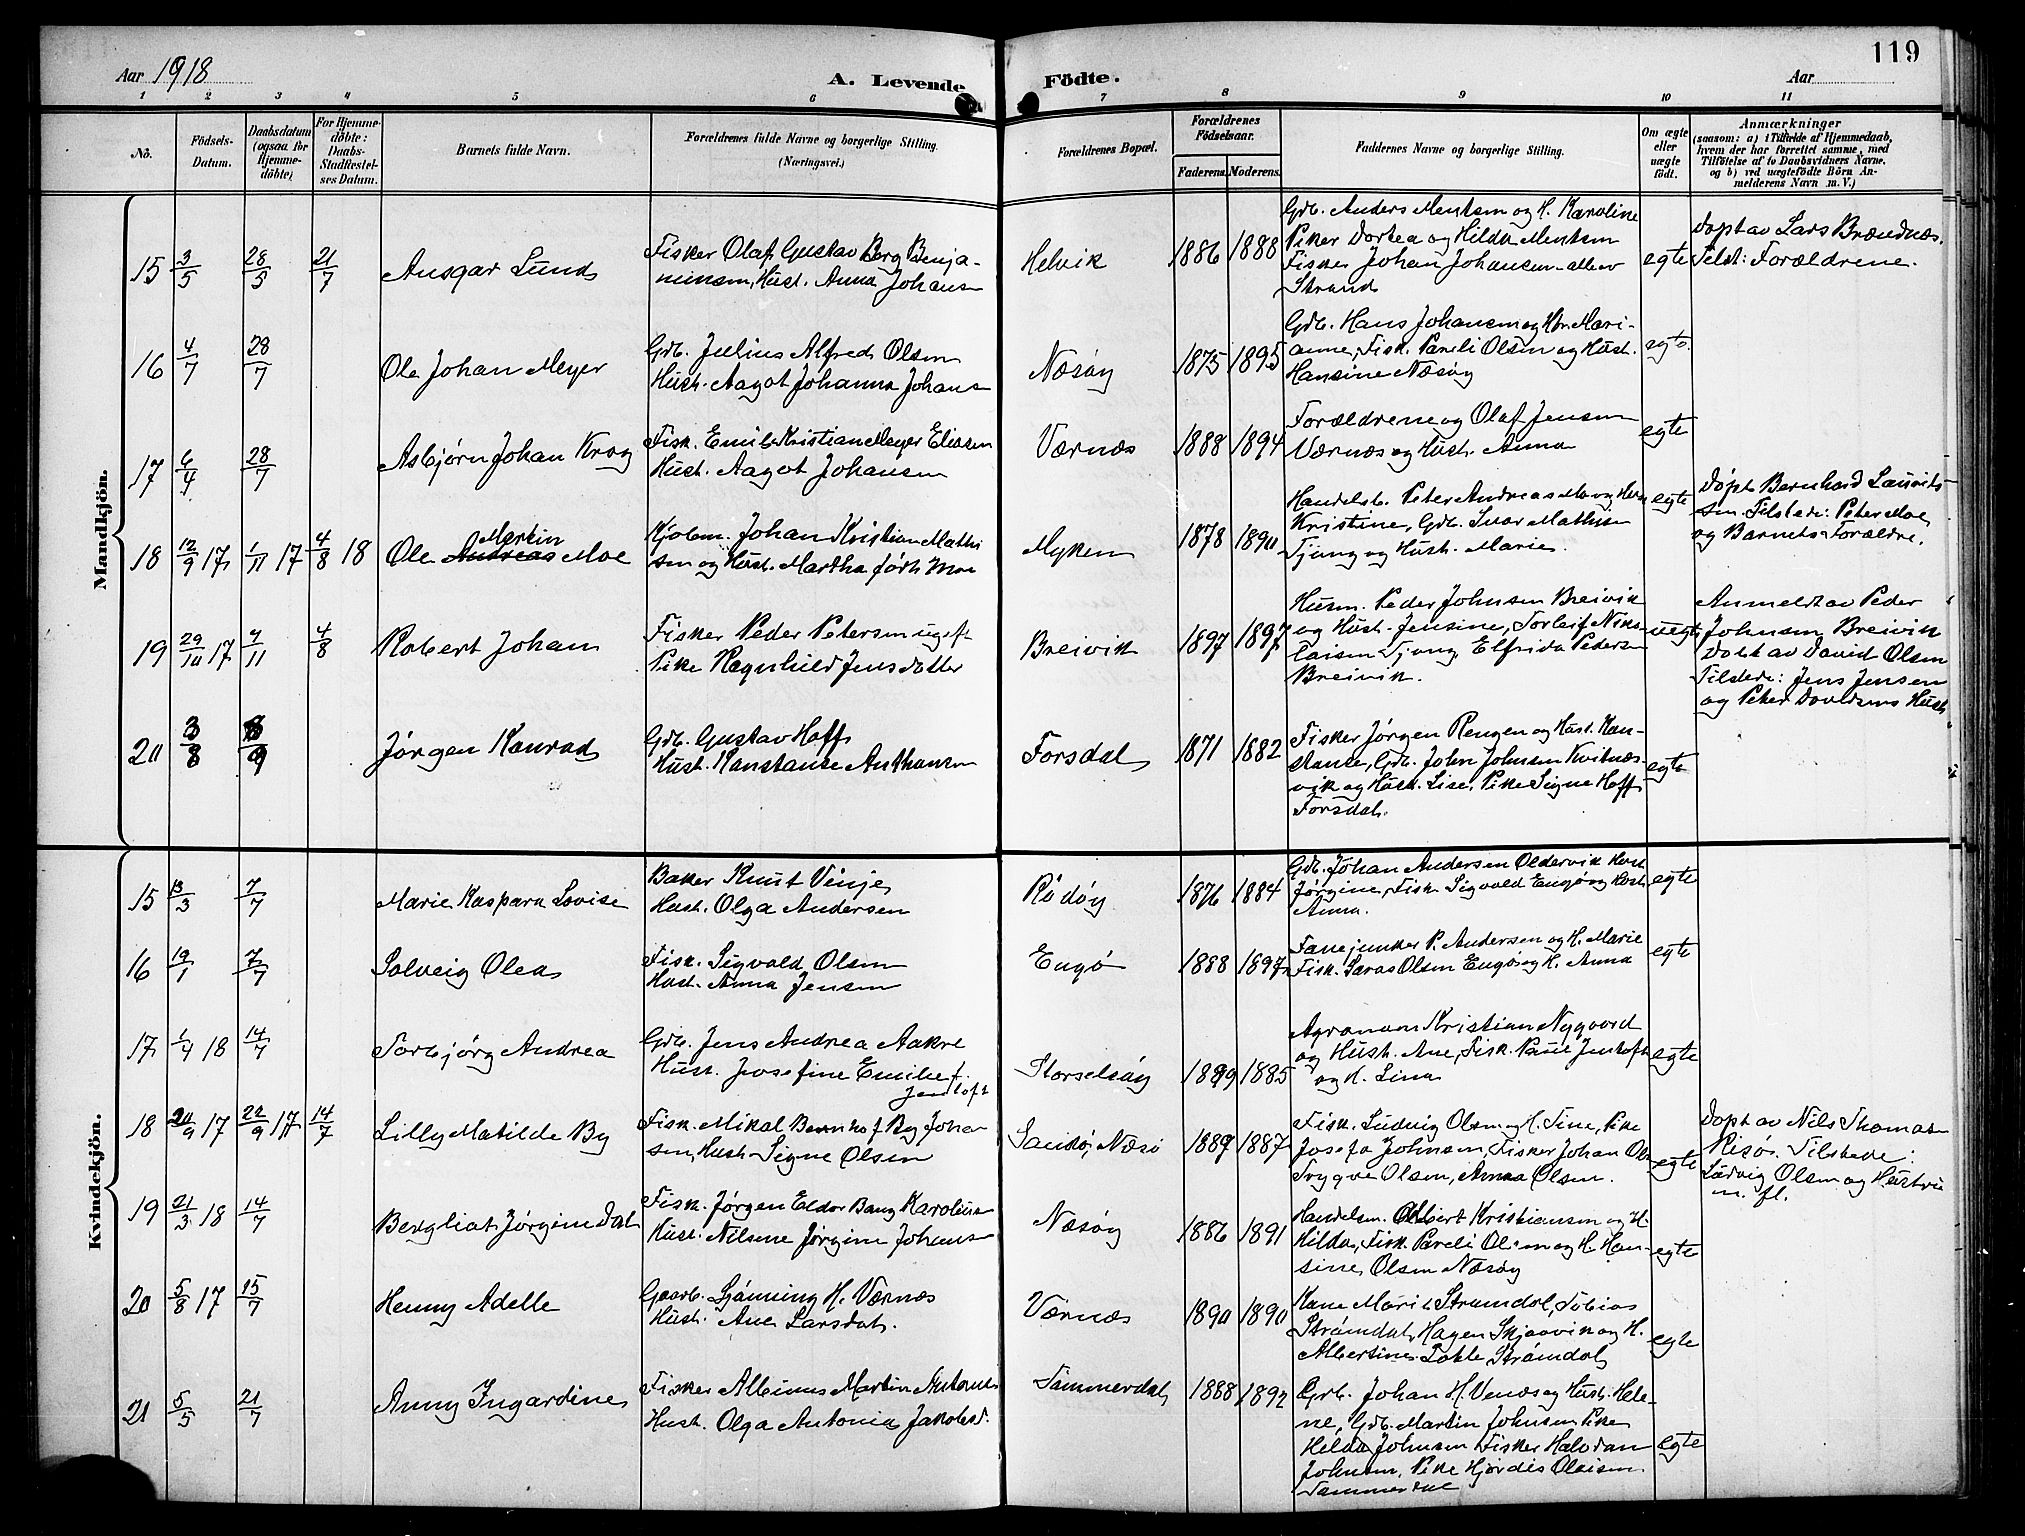 119
Aar 1918
A. Levende Födte.
Aar
1 2 3 4 5 6 7 8 9 10 11
No.
Födsels-
Datum.
Daabsdatum
(ogsaa for
Hjemme-
döbte)
For Hjemme-
döbte:
Daabs-
Stadfæstel-
ses Datum.
Barnets fulde Navn.
Forældrenes fulde Navne og borgerlige Stilling.
(Næringsvei.)
Forældrenes Bopæl.
Forældrenes
Födselsaar.
Faderens. Moderens.
Faddernes Navne og borgerlige Stilling.
Om ægte
eller
uægte
födt.
Anmærkninger
(saasom: a) i Tilfælde af Hjemmedaab,
hvem der har forrettet samme, med
Tilföielse af to Daabsvidners Navne,
og b) ved uægtefödte Börn An-
melderens Navn m. V.)
Mandkjön.
15 3/5 28/3 21/7 Ansgar Lund
Fisker Olaf Gustav Berg Benja-
minsen, Hust. Anna Johans
Helvik 1886 1888
Gdb. Anders Mentsen og H. Karoline
Piker Dortea og Hilda Mentsen
Fisker Johan Johansen alle
Strand
egte
Døpt av Lars Brændnæs.
Tilst: Forældrene.
16 4/7 28/7 Ole Johan Meyer
Gdb. Julius Alfred Olsen
Hust. Aagot Johanna Johans
Næsøy 1875 1895
Gdb. Hans Johansen og Hu. Mari-
anne, Fisk. Pareli Olsen og Hust.
Hansine Næsøy
egte
17 6/4 28/7 Asbjørn Johan Krog
Fisk. Emil Kristian Meyer Eliasen
Hust. Aagot Johansen
Værnæs 1888 1894
Forældrene og Olaf Jensen
Værnæs og Hust. Anna
egte
18 12/9 17 1/11 17 4/8 18 Ole Andreas Moe
Martin
Johan Kristian Mathi
sen og Hust. Martha født Moe
Myken 1878 1890
Handelsb. Peter Andreas Moe og Hust
Kristine, Gdb. Ivar Mathisen
Tjong og Hust. Marie.
egte
Døpt Bernhard Lauvits-
sen. Tilstede: Peter Moe
og Barnets Forældre.
19 29/10 17 7/11 4/8 Robert Johan
Fisker Peder Petersen ugeft
Pike Ragnhild Jensdatter
Breivik 1897 1897
Husm. Peder Johnsen Breivik
og Hust. Jensine, Torleif Niko-
laisen Tjong, Elfrida Peders
Breivik.
uegte
Anmeldt av Peder
Johnsen Breivik
Døbt av David Olsen
Tilstede: Jens Jensen
og Peter Davidsens Hust
20 3/8 8/9 Jørgen Konrad
Gdb. Gustav Hoff
Hust. Konstanse Anthonsen
Forsdal 1871 1882
Fisker Jørgen Rengen og Hust. Kon-
stanse, Gdb. John Johnsen Kvitnæs-
vik og Hust. Lise, Pike Signe Hoff
Forsdal.
egte
Kvindekjön.
15 13/3 7/7 Marie Kaspara Lovise
Baker Knut Vinje
Hust. Olga Andersen
Rødøy 1876 1884
Gdb. Johan Andersen Oldervik Hust
Jørgine, Fisk. Sigvald Engø og Hust.
Anna.
egte
16 19/1 7/7 Solveig Olea
Fisk. Sigvald Olsen
Hust. Anna Jensen
Engø 1888 1897
Fanejunker P. Andersen og H. Marie
Fisk. Olsen Engø og H. Anna
egte
17 1/4 18 14/7 Torbjørg Andrea
Gdb. Jens Andrea Aakre
Hust. Josefine Emilie f.
Jentoft
Storselsøy 1889 1885
Agronom Kristian Nygaard
og Hust. Ane, Fisk. Paul Jentoft
og H. Lina
egte
18 20/9 17 22/9 17 14/7 Lilly Matilde By
Fisk. Mikal Bernhof By Johan
sen, Hust. Signe Olsen
Næsø 1889 1887
Fisk. Ludvig Olsen og H. Tine, Pike
Josefa Johnsen, Fisker Johan Ols
Trygve Olsen, Anna Olsen.
egte
Døpt av Nils Thomas
Risø. Tilstede:
Ludvig Olsen og Hustru
m. fl.
19 21/3 18 14/7 Bergliot Jørgine Dal
Fisk. Jørgen Eldor Bang Karolius
Hust. Nilsine Jørgine Johans
Næsøy 1886 1891
Handelsm. Albert Kristiansen og H.
Hilda, Fisk. Pareli Olsen og H. Han-
sine Olsen Næsøy
egte
20 5/8 17 15/7 Henny Adelle
Gaarb. Ljønning H. Værnæs
Hust. Ane Larsdat.
Værnæs 1890 1890
Kone Marie Strømdal, Tobias
Strømdal, Hagen Skjaavik og H.
Albertine Strømdal
egte
21 5/5 21/7 Anny Ingardine
Fisker Albinus Martin Antons
Hust. Olga Antonia Jakobsd.
Tømmerdal 1888 1892
Grb. Johan H. Venæs og Hust. Hele-
ne, Gdb. Martin Johnsen Pike
Hilda Johnsen Fisker Halvdan
Johnsen, Pike Hjørdis Olaisen
Tømmerdal
egte